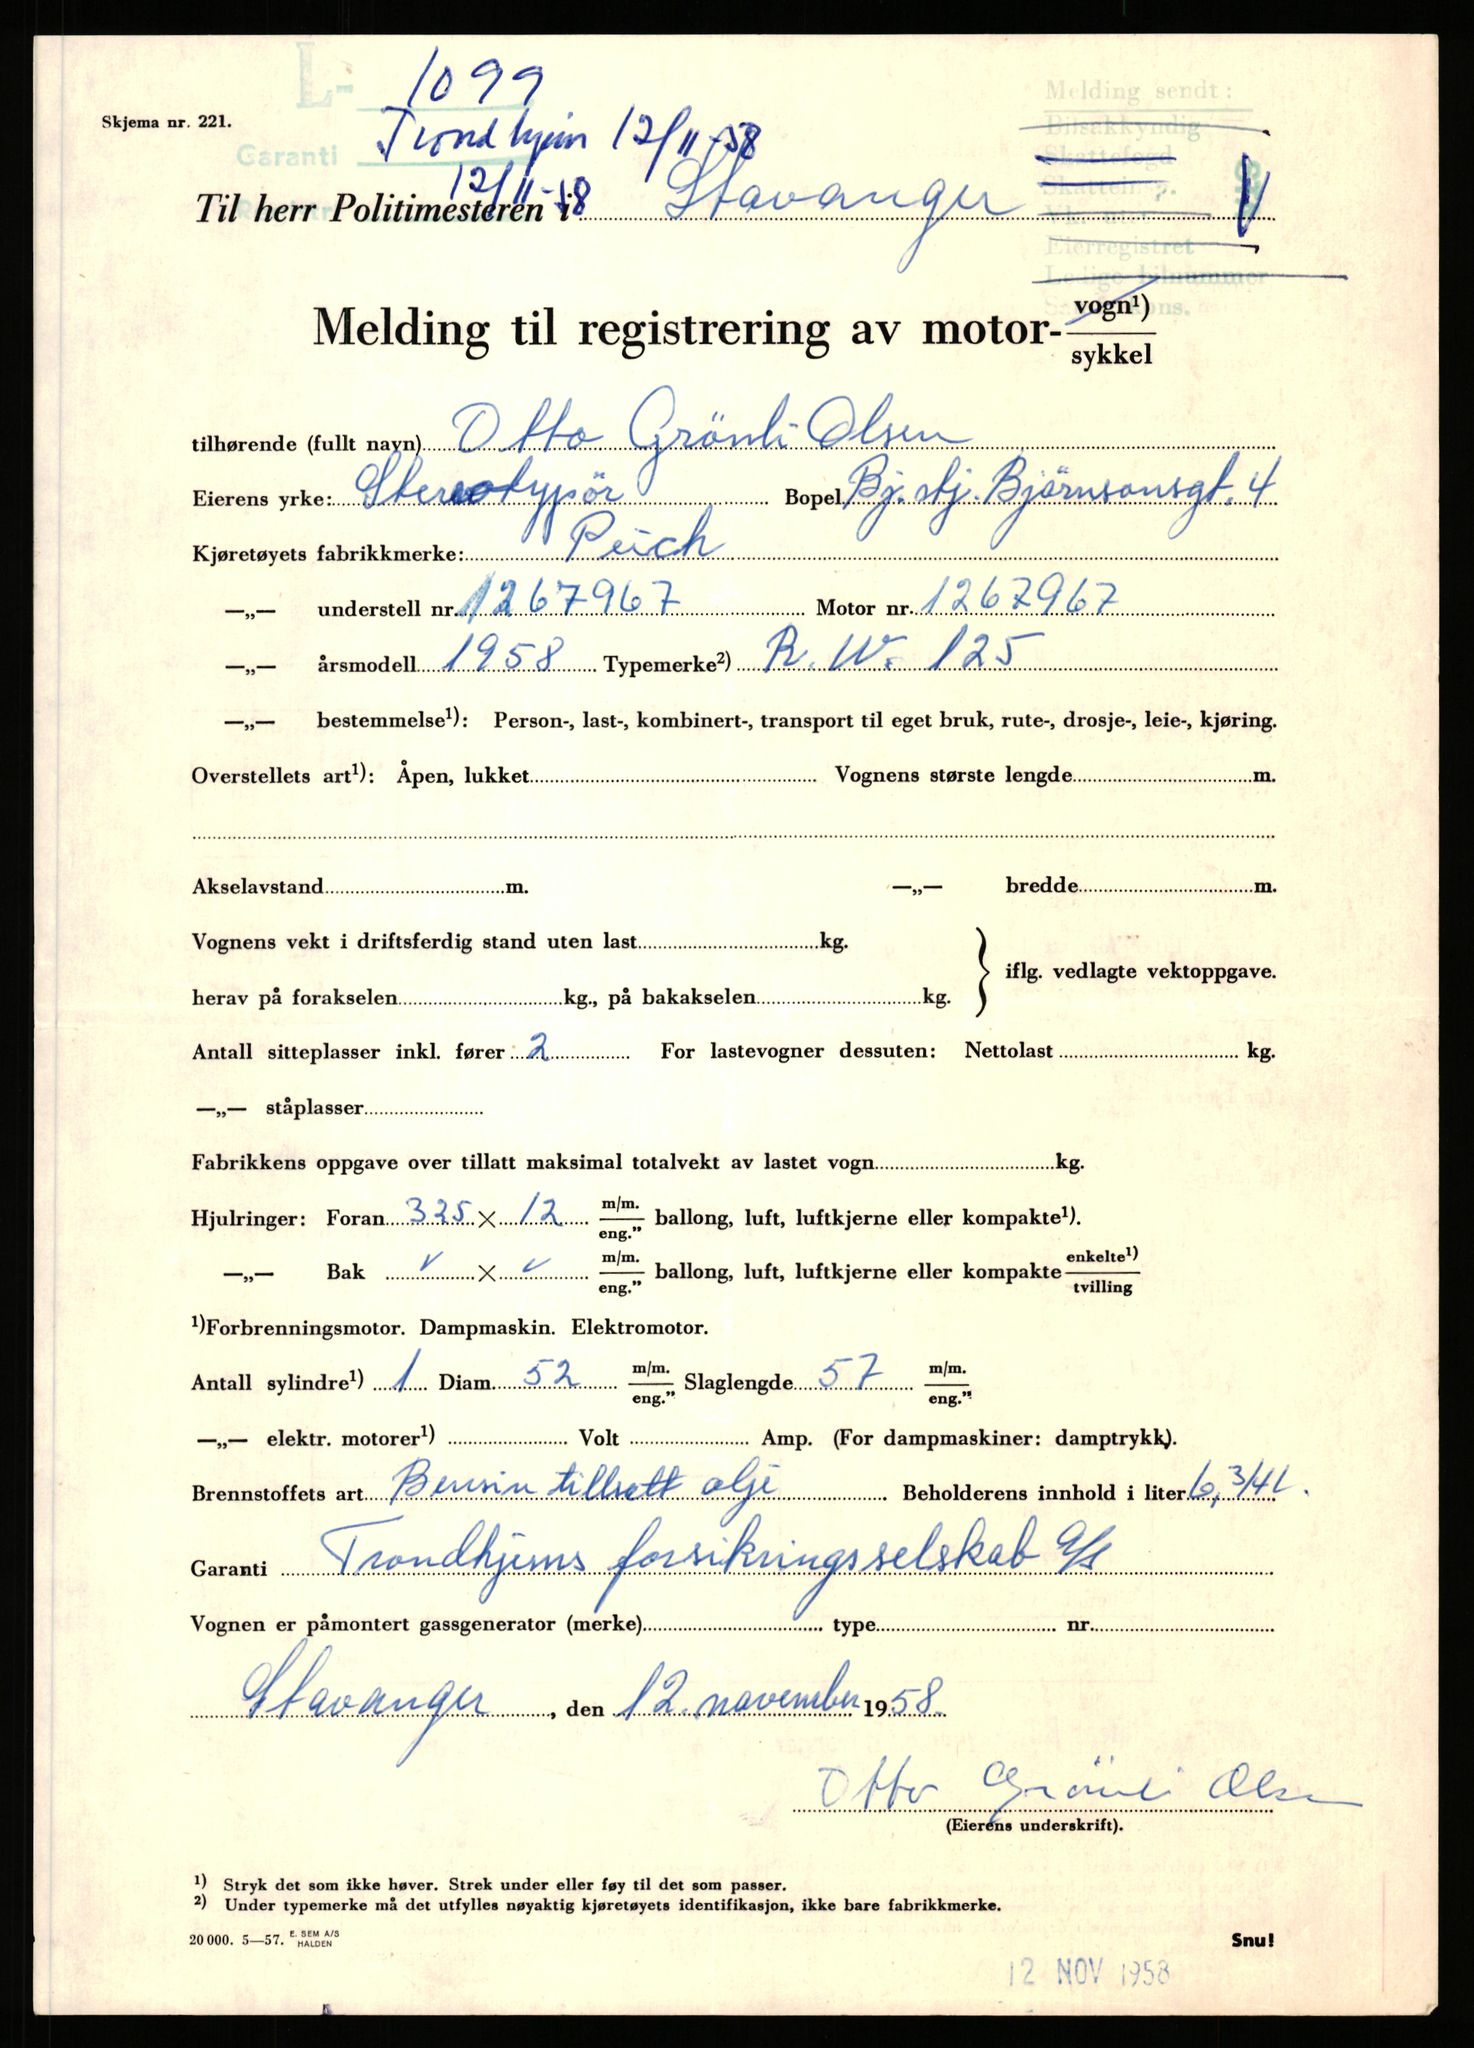 L- 1099
Skjema nr. 221.
Melding sendt:
Bilsakkyndig
Garanti Trondhjem 12/11-58
Skattefogd
12/11-58
Til herr Politimesteren i Stavanger
Eierregistret
Ledige bilnummer
Melding til registrering av motor- vogn¹)
sykkel
tilhørende (fullt navn) Otto Grönli Olsen
Eierens yrke: Stereotypör Bopel Bj. stj. Björnsonsgt. 4
Kjøretøyets fabrikkmerke: Puch
—„— understell nr. 1267967 Motor nr. 1267967
—„— årsmodell 1958 Typemerke²) R. W. 125
—„— bestemmelse¹): Person-, last-, kombinert-, transport til eget bruk, rute-, drosje-, leie-, kjøring.
Overstellets art¹): Åpen, lukket Vognens største lengde m.
Akselavstand m. —„— bredde m.
Vognens vekt i driftsferdig stand uten last kg.
iflg. vedlagte vektoppgave.
herav på forakselen kg., på bakakselen kg.
Antall sitteplasser inkl. fører 2 For lastevogner dessuten: Nettolast kg.
—„— ståplasser
Fabrikkens oppgave over tillatt maksimal totalvekt av lastet vogn kg.
Hjulringer: Foran 325 × 12 m/m. eng." ballong, luft, luftkjerne eller kompakte¹).
—„— Bak v × v m/m. eng." ballong, luft, luftkjerne eller kompakte enkelte¹) tvilling
¹)Forbrenningsmotor. Dampmaskin. Elektromotor.
Antall sylindre¹) 1 Diam. 52 m/m. eng." Slaglengde 57 m/m. eng."
—„— elektr. motorer¹) Volt Amp. (For dampmaskiner: damptrykk).
Brennstoffets art Bensin tillsatt olje Beholderens innhold i liter 6,3/4 l.
Garanti Trondhjems forsikringsselskab A/S
Vognen er påmontert gassgenerator (merke) type nr.
Stavanger, den 12. november 1958.
Otto Grönli Olsen
(Eierens underskrift).
¹) Stryk det som ikke høver. Strek under eller føy til det som passer.
²) Under typemerke må det utfylles nøyaktig kjøretøyets identifikasjon, ikke bare fabrikkmerke.
20 000. 5—57. E. SEM A/S HALDEN
Snu!
12 NOV 1958